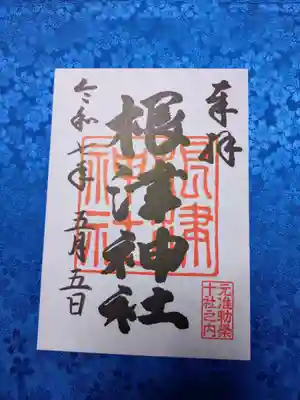 奉拝
根津神社
根津神社
元准勅祭
十社之内
令和七年 五月五日